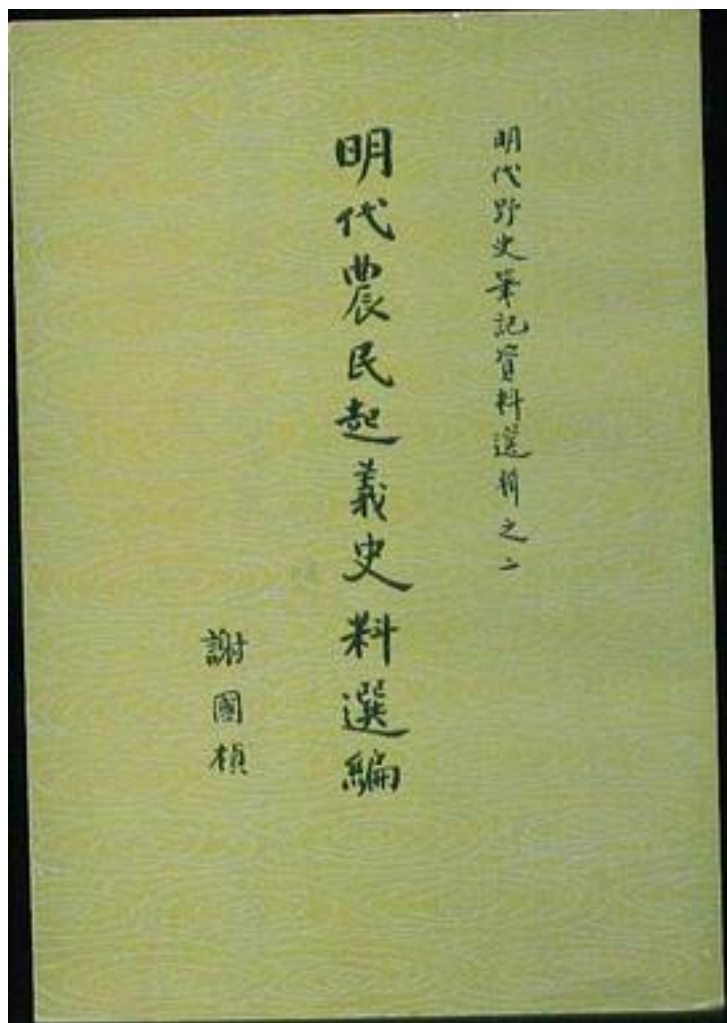 明代野史筆記資料選輯之二
明代農民起義史料選編
謝國楨